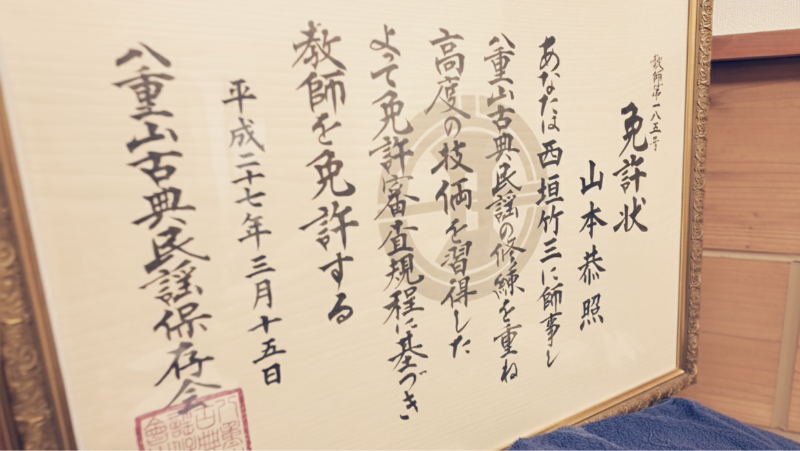 教師第一八五号
免許状
山本恭照
あなたは西垣竹三に師事し
八重山古典民謡の修練を重ね
高度の技倆を習得した
よって免許審査規程に基づき
教師を免許する
平成二十七年三月十五日
八重山古典民謡保存会